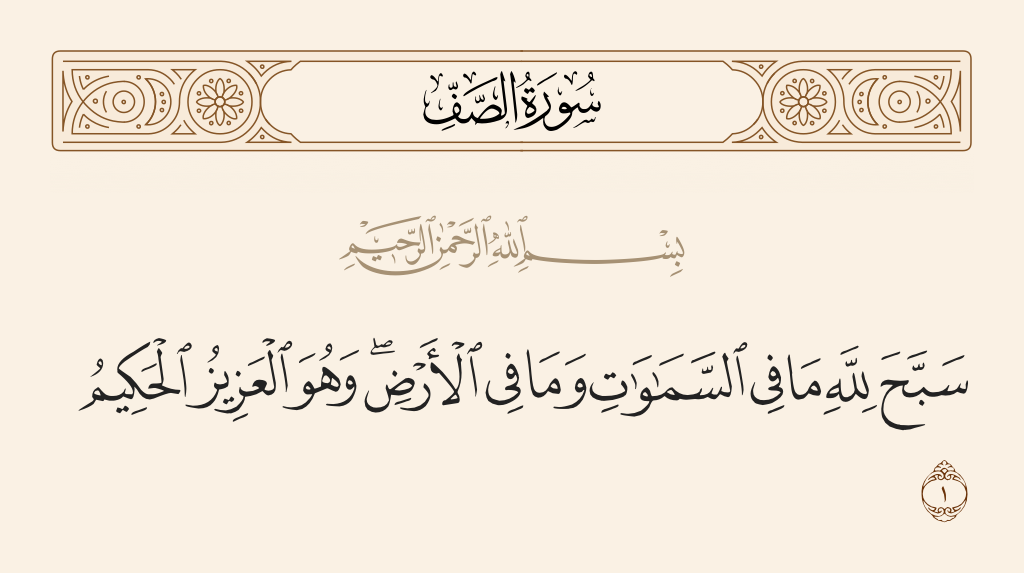 سُورَةُ الصَّفِّ
بِسْمِ ٱللَّهِ ٱلرَّحْمَٰنِ ٱلرَّحِيمِ
سَبَّحَ لِلَّهِ مَا فِى ٱلسَّمَٰوَٰتِ وَمَا فِى ٱلْأَرْضِ ۖ وَهُوَ ٱلْعَزِيزُ ٱلْحَكِيمُ
١